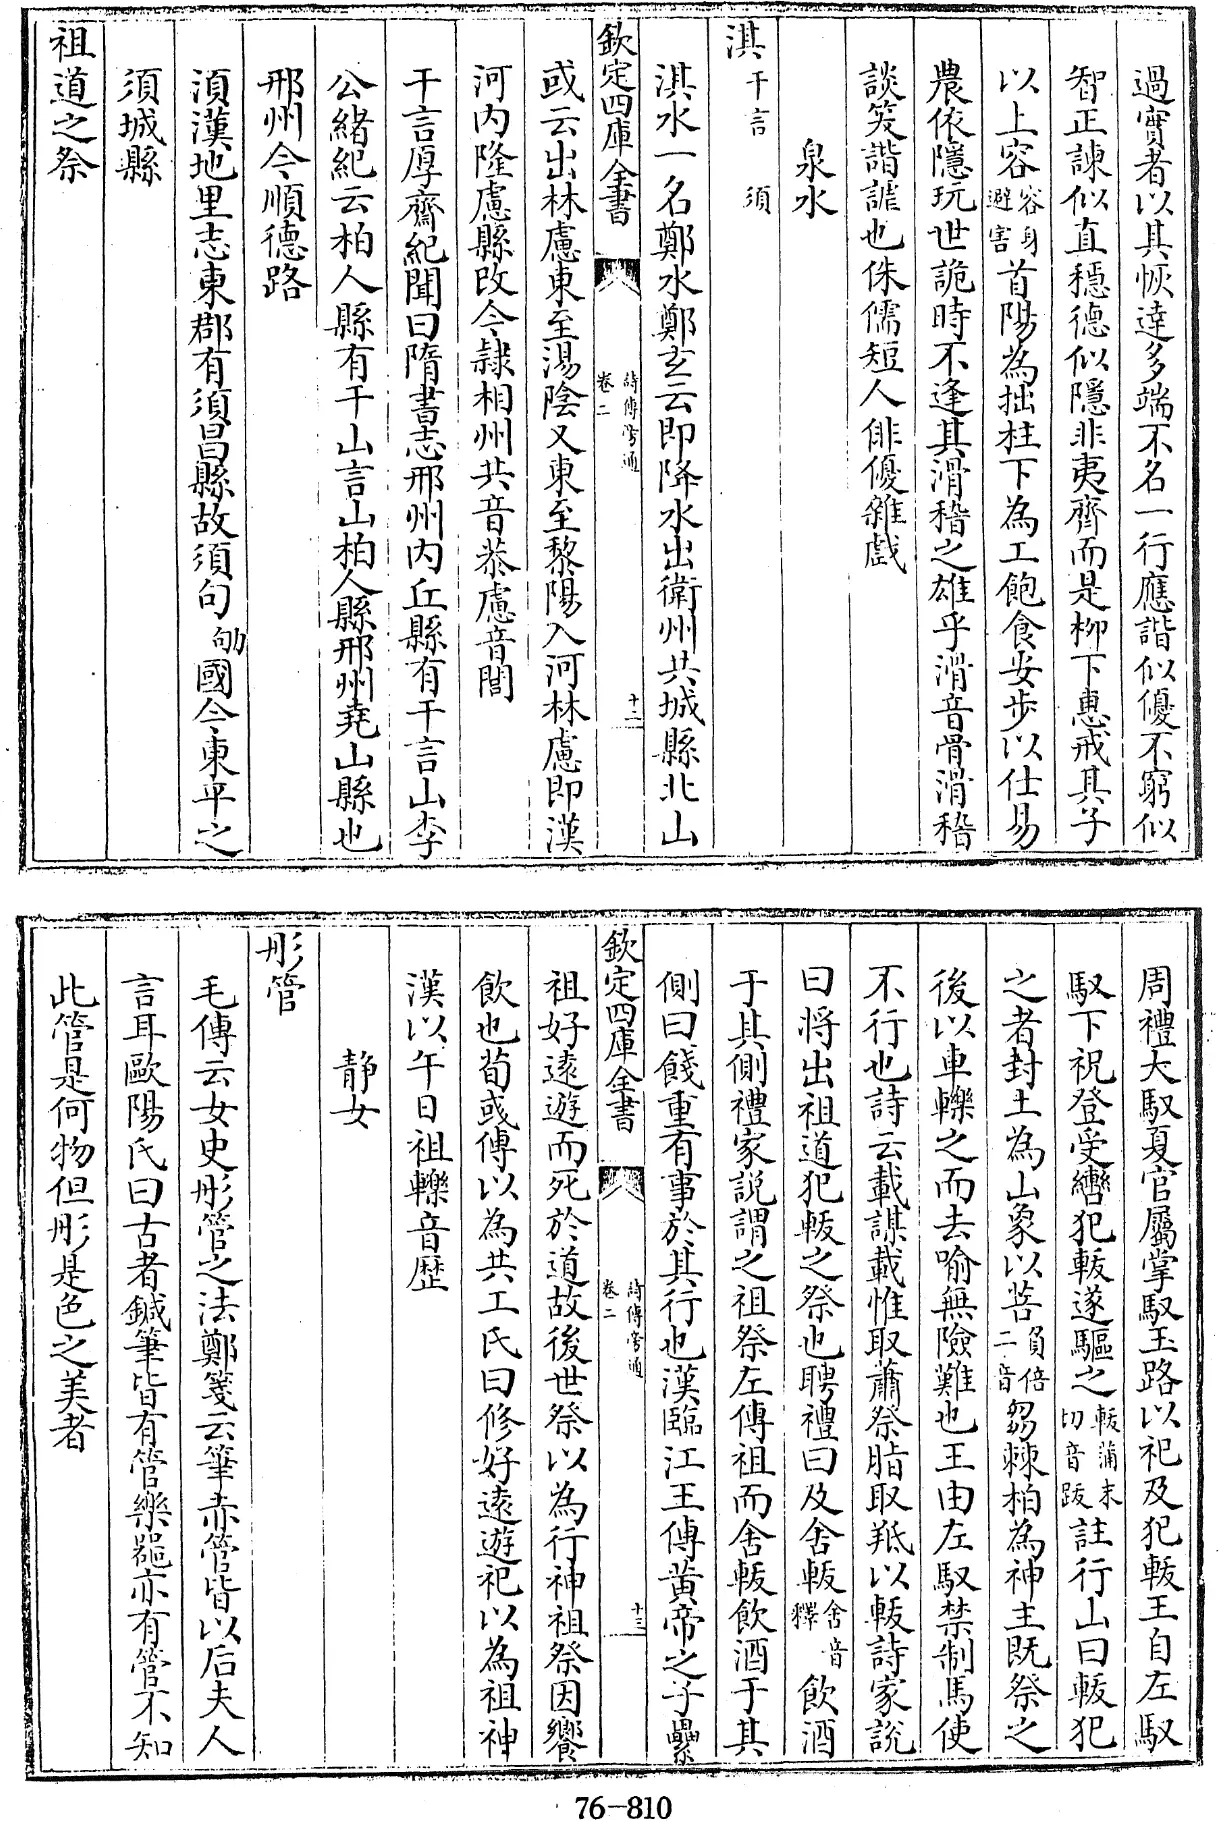 過實者以其恢達多端不名一行應諧似優不窮似
智正諫似直穩德似隱非夷齊而是柳下惠戒其子
以上容容身避害首陽為拙柱下為工飽食安步以仕易
農依隱玩世詭時不逢其滑稽之雄乎滑音骨滑稽
談笑諧謔也侏儒短人俳優雜戲
泉水
淇 干言 須
淇水一名鄭水鄭玄云即降水出衛州共城縣北山
欽定四庫全書 詩傳旁通 卷二 十二
或云出林慮東至湯陰又東至黎陽入河林慮即漢
河内隆慮縣改今隷相州共音恭慮音閭
干言厚齋紀聞曰隋書志邢州内丘縣有干言山李
公緒紀云柏人縣有干山言山柏人縣邢州堯山縣也
邢州今順德路
湏漢地里志東郡有須昌縣故須句劬國今東平之
須城縣
祖道之祭
周禮大馭夏官屬掌馭玉路以祀及犯軷王自左馭
馭下祝登受轡犯軷遂驅之軷蒲末切音跋註行山曰軷犯
之者封土為山象以菩負倍二音芻棘柏為神主既祭之
後以車轢之而去喻無險難也王由左馭禁制馬使
不行也詩云載謀載惟取蕭祭脂取羝以軷詩家說
曰将出祖道犯軷之祭也聘禮曰及舍軷舍音釋飲酒
于其側禮家說謂之祖祭左傳祖而舍軷飲酒于其
側曰餞重有事於其行也漢臨江王傳黄帝之子纍
欽定四庫全書 詩傳旁通 卷二 十三
祖好遠遊而死於道故後世祭以為行神祖祭因饗
飲也荀彧傳以為共工氏曰修好遠遊祀以為祖神
漢以午日祖轢音歷
静女
彤管
毛傳云女史彤管之法鄭箋云筆赤管皆以后夫人
言耳歐陽氏曰古者鍼筆皆有管樂器亦有管不知
此管是何物但彤是色之美者
76-810